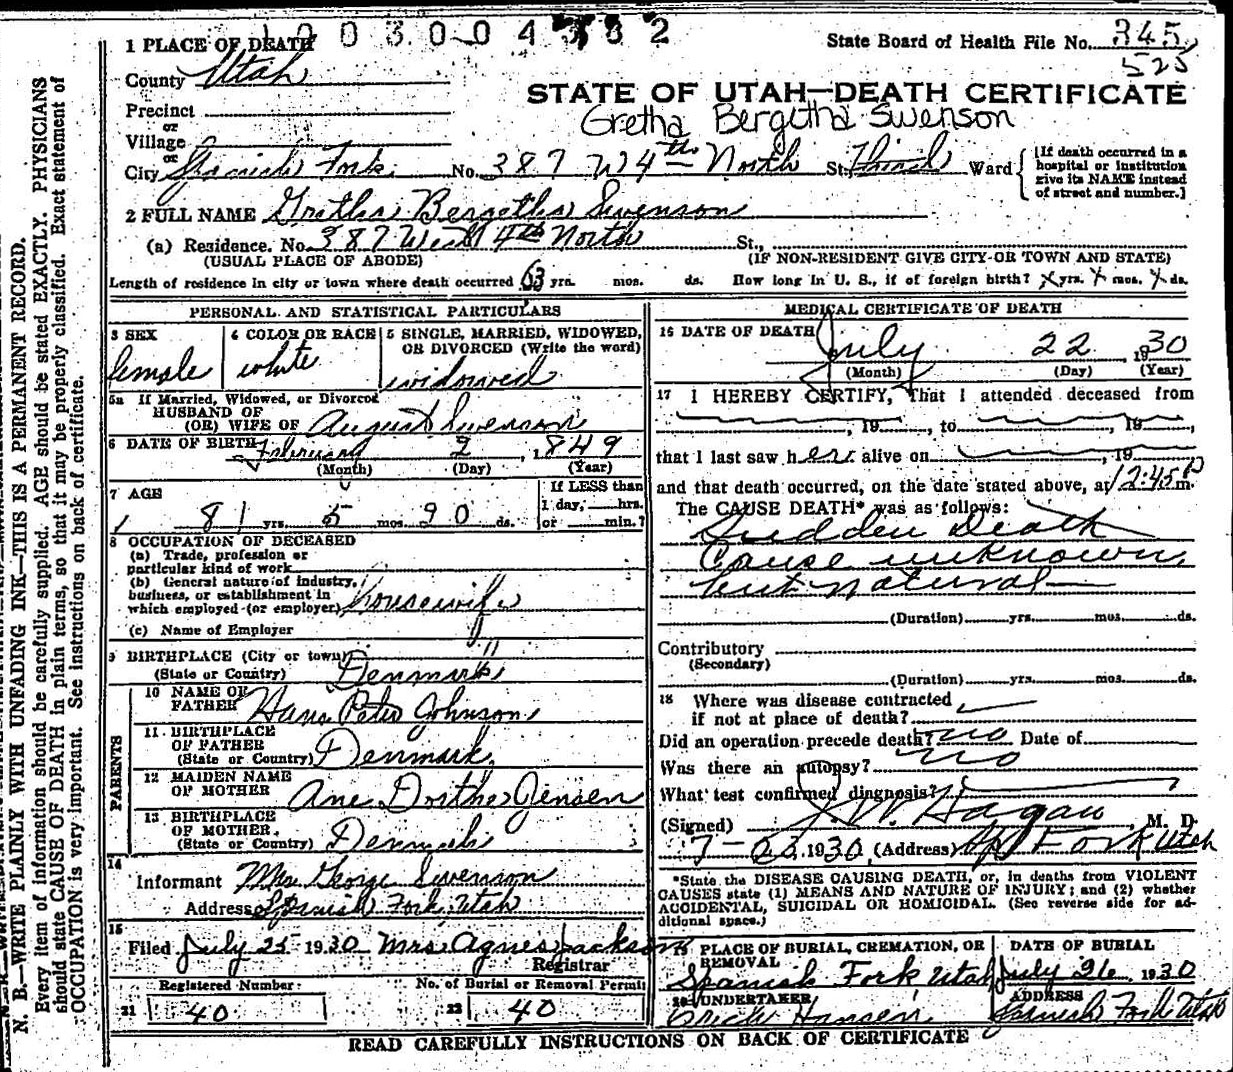 1003004382
State Board of Health File No. 345
525
1 PLACE OF DEATH
County Utah
STATE OF UTAH—DEATH CERTIFICATE
Precinct
Gretha Bergetha Swenson
or
Village
or
City Spanish Fork No. 387 W 4th North St. Third Ward
[If death occurred in a hospital or institution give its NAME instead of street and number.]
2 FULL NAME Gretha Bergetha Swenson
(a) Residence. No. 387 West 4th North St.,
(USUAL PLACE OF ABODE) (IF NON-RESIDENT GIVE CITY OR TOWN AND STATE)
Length of residence in city or town where death occurred 63 yrs. mos. ds. How long in U. S., if of foreign birth? x yrs. x mos. x ds.
PERSONAL AND STATISTICAL PARTICULARS
3 SEX 4 COLOR OR RACE 5 SINGLE, MARRIED, WIDOWED,
OR DIVORCED (Write the word)
female white widowed
5a If Married, Widowed, or Divorced
HUSBAND OF
(OR) WIFE OF August Swenson
6 DATE OF BIRTH February 2, 1849
(Month) (Day) (Year)
7 AGE If LESS than
1 day, hrs.
81 yrs. 5 mos. 20 ds. or min.?
8 OCCUPATION OF DECEASED
(a) Trade, profession or
particular kind of work
(b) General nature of industry,
business, or establishment in
which employed (or employer) housewife
(c) Name of Employer "
9 BIRTHPLACE (City or town)
(State or Country) Denmark
PARENTS
10 NAME OF
FATHER Hans Peter Johnson
11 BIRTHPLACE
OF FATHER
(State or Country) Denmark
12 MAIDEN NAME
OF MOTHER Ane Dorthe Jensen
13 BIRTHPLACE
OF MOTHER
(State or Country) Denmark
14
Informant Mrs George Swenson
Address Spanish Fork, Utah
15
Filed July 25 1930 Mrs Agnes Jackson
Registrar
Registered Number: No. of Burial or Removal Permit
21 40 22 40
MEDICAL CERTIFICATE OF DEATH
16 DATE OF DEATH July 22, 1930
(Month) (Day) (Year)
17 I HEREBY CERTIFY, That I attended deceased from
, 19 , to , 19 ,
that I last saw her alive on , 19
and that death occurred, on the date stated above, at 12:45 P m.
The CAUSE DEATH* was as follows:
Sudden Death
Cause unknown
but natural
(Duration) yrs. mos. ds.
Contributory
(Secondary)
(Duration) yrs. mos. ds.
18 Where was disease contracted
if not at place of death?
Did an operation precede death? no Date of
Was there an autopsy? no
What test confirmed diagnosis?
(Signed) J. W. Hagan, M. D.
7-23, 1930, (Address) Sp. Fork Utah
*State the DISEASE CAUSING DEATH, or, in deaths from VIOLENT
CAUSES state (1) MEANS AND NATURE OF INJURY; and (2) whether
ACCIDENTAL, SUICIDAL OR HOMICIDAL. (See reverse side for ad-
ditional space.)
19 PLACE OF BURIAL, CREMATION, OR REMOVAL DATE OF BURIAL
Spanish Fork Utah July 26, 1930
20 UNDERTAKER ADDRESS
Hansen Spanish Fork Utah
READ CAREFULLY INSTRUCTIONS ON BACK OF CERTIFICATE
N. B.—WRITE PLAINLY WITH UNFADING INK—THIS IS A PERMANENT RECORD.
Every item of information should be carefully supplied. AGE should be stated EXACTLY. PHYSICIANS
should state CAUSE OF DEATH in plain terms, so that it may be properly classified. Exact statement of
OCCUPATION is very important. See instructions on back of certificate.